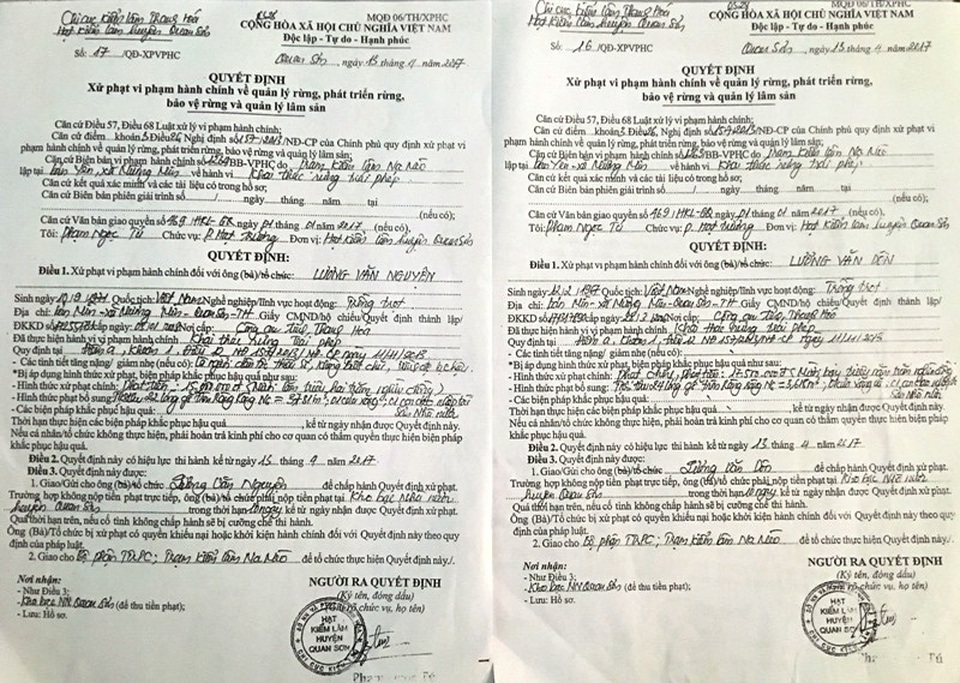 Chi cục Kiểm lâm Thanh Hoá
Hạt Kiểm lâm huyện Quan Sơn
MQĐ 06/TH/XPHC
CỘNG HÒA XÃ HỘI CHỦ NGHĨA VIỆT NAM
Độc lập - Tự do - Hạnh phúc
Số: 17 /QĐ-XPVPHC
Quan Sơn, ngày 13 tháng 4 năm 2017
QUYẾT ĐỊNH
Xử phạt vi phạm hành chính về quản lý rừng, phát triển rừng,
bảo vệ rừng và quản lý lâm sản
Căn cứ Điều 57, Điều 68 Luật xử lý vi phạm hành chính;
Căn cứ điểm khoản 3 Điều 26 Nghị định số 157/2013/NĐ-CP của Chính phủ quy định xử phạt vi
phạm hành chính về quản lý rừng, phát triển rừng, bảo vệ rừng và quản lý lâm sản;
Căn cứ Biên bản vi phạm hành chính số /BB-VPHC do Trạm Kiểm lâm Na Mèo
lập tại xã Mường Mìn về hành vi Khai thác rừng trái phép
Căn cứ kết quả xác minh và các tài liệu có trong hồ sơ;
Căn cứ Biên bản phiên giải trình số / ngày tháng năm tại
(nếu có);
Căn cứ Văn bản giao quyền số 469/HKL-QQ ngày 01 tháng 01 năm 2017 (nếu có),
Tôi: Phạm Ngọc Tú Chức vụ: P. Hạt trưởng Đơn vị: Hạt Kiểm lâm huyện Quan Sơn
QUYẾT ĐỊNH:
Điều 1. Xử phạt vi phạm hành chính đối với ông (bà)/tổ chức: LƯƠNG VĂN NGUYÊN
Sinh ngày Quốc tịch: Việt Nam Nghề nghiệp/lĩnh vực hoạt động: Trồng trọt
Địa chỉ: bản Mìn - xã Mường Mìn - Quan Sơn - TH Giấy CMND/hộ chiếu/Quyết định thành lập/
ĐKKD số cấp ngày Nơi cấp: Công an tỉnh Thanh Hoá
Đã thực hiện hành vi vi phạm hành chính: Khai thác rừng trái phép
Quy định tại điểm a, Khoản 1, Điều 12 NĐ 157/2013/NĐ-CP ngày 11/11/2013
- Các tình tiết tăng nặng/ giảm nhẹ (nếu có):
*Bị áp dụng hình thức xử phạt vi phạm hành chính như sau:
- Hình thức xử phạt chính: Phạt tiền:
- Hình thức phạt bổ sung:
- Các biện pháp khắc phục hậu quả:
Thời hạn thực hiện các biện pháp khắc phục hậu quả , kể từ ngày nhận được Quyết định này.
Nếu cá nhân/tổ chức không thực hiện, phải hoàn trả kinh phí cho cơ quan có thẩm quyền thực hiện biện pháp
khắc phục hậu quả.
Điều 2. Quyết định này có hiệu lực thi hành kể từ ngày 13 tháng 4 năm 2017
Điều 3. Quyết định này được:
1. Giao/Gửi cho ông (bà)/tổ chức Lương Văn Nguyên để chấp hành Quyết định xử phạt.
Trường hợp không nộp tiền phạt trực tiếp, ông (bà)/tổ chức phải nộp tiền phạt tại Kho bạc Nhà nước
huyện Quan Sơn trong thời hạn 10 ngày kể từ ngày nhận được Quyết định xử phạt.
Quá thời hạn trên, nếu cố tình không chấp hành sẽ bị cưỡng chế thi hành.
Ông (Bà)/Tổ chức bị xử phạt có quyền khiếu nại hoặc khởi kiện hành chính đối với Quyết định này theo quy
định của pháp luật.
2. Giao cho Bộ phận TTPC; Trạm Kiểm lâm Na Mèo để tổ chức thực hiện Quyết định này./.
Nơi nhận:
- Như Điều 3;
- Kho bạc NN Quan Sơn (để thu tiền phạt);
- Lưu: Hồ sơ.
NGƯỜI RA QUYẾT ĐỊNH
(Ký tên, đóng dấu)
chức vụ, họ tên)
HẠT
KIỂM LÂM
HUYỆN
QUAN SƠN
Chi cục Kiểm lâm Thanh Hoá
Hạt Kiểm lâm huyện Quan Sơn
MQĐ 06/TH/XPHC
CỘNG HÒA XÃ HỘI CHỦ NGHĨA VIỆT NAM
Độc lập - Tự do - Hạnh phúc
Số: 16 /QĐ-XPVPHC
Quan Sơn, ngày 13 tháng 4 năm 2017
QUYẾT ĐỊNH
Xử phạt vi phạm hành chính về quản lý rừng, phát triển rừng,
bảo vệ rừng và quản lý lâm sản
Căn cứ Điều 57, Điều 68 Luật xử lý vi phạm hành chính;
Căn cứ điểm khoản 3 Điều 26, Nghị định số 157/2013/NĐ-CP của Chính phủ quy định xử phạt vi
phạm hành chính về quản lý rừng, phát triển rừng, bảo vệ rừng và quản lý lâm sản;
Căn cứ Biên bản vi phạm hành chính số /BB-VPHC do Trạm Kiểm lâm Na Mèo
lập tại xã Mường Mìn về hành vi Khai thác rừng trái phép
Căn cứ kết quả xác minh và các tài liệu có trong hồ sơ;
Căn cứ Biên bản phiên giải trình số / ngày tháng năm tại
(nếu có);
Căn cứ Văn bản giao quyền số 469/HKL-QQ ngày 01 tháng 01 năm 2017 (nếu có),
Tôi: Phạm Ngọc Tú Chức vụ: P. Hạt trưởng Đơn vị: Hạt Kiểm lâm huyện Quan Sơn
QUYẾT ĐỊNH:
Điều 1. Xử phạt vi phạm hành chính đối với ông (bà)/tổ chức: LƯƠNG VĂN
Sinh ngày Quốc tịch: Việt Nam Nghề nghiệp/lĩnh vực hoạt động: Trồng trọt
Địa chỉ: bản Mìn - xã Mường Mìn - Quan Sơn - TH Giấy CMND/hộ chiếu/Quyết định thành lập/
ĐKKD số cấp ngày Nơi cấp: Công an tỉnh Thanh Hoá
Đã thực hiện hành vi vi phạm hành chính: Khai thác rừng trái phép
Quy định tại điểm a, Khoản 1, Điều 12 NĐ 157/2013/NĐ-CP ngày 11/11/2013
- Các tình tiết tăng nặng/ giảm nhẹ (nếu có):
*Bị áp dụng hình thức xử phạt vi phạm hành chính như sau:
- Hình thức xử phạt chính: Phạt tiền:
- Hình thức phạt bổ sung:
- Các biện pháp khắc phục hậu quả:
Thời hạn thực hiện các biện pháp khắc phục hậu quả , kể từ ngày nhận được Quyết định này.
Nếu cá nhân/tổ chức không thực hiện, phải hoàn trả kinh phí cho cơ quan có thẩm quyền thực hiện biện pháp
khắc phục hậu quả.
Điều 2. Quyết định này có hiệu lực thi hành kể từ ngày 13 tháng 4 năm 2017
Điều 3. Quyết định này được:
1. Giao/Gửi cho ông (bà)/tổ chức Lương Văn để chấp hành Quyết định xử phạt.
Trường hợp không nộp tiền phạt trực tiếp, ông (bà)/tổ chức phải nộp tiền phạt tại Kho bạc Nhà nước
huyện Quan Sơn trong thời hạn 10 ngày kể từ ngày nhận được Quyết định xử phạt.
Quá thời hạn trên, nếu cố tình không chấp hành sẽ bị cưỡng chế thi hành.
Ông (Bà)/Tổ chức bị xử phạt có quyền khiếu nại hoặc khởi kiện hành chính đối với Quyết định này theo quy
định của pháp luật.
2. Giao cho Bộ phận TTPC; Trạm Kiểm lâm Na Mèo để tổ chức thực hiện Quyết định này./.
Nơi nhận:
- Như Điều 3;
- Kho bạc NN Quan Sơn (để thu tiền phạt);
- Lưu: Hồ sơ.
NGƯỜI RA QUYẾT ĐỊNH
(Ký tên, đóng dấu)
chức vụ, họ tên)
HẠT
KIỂM LÂM
HUYỆN
QUAN SƠN